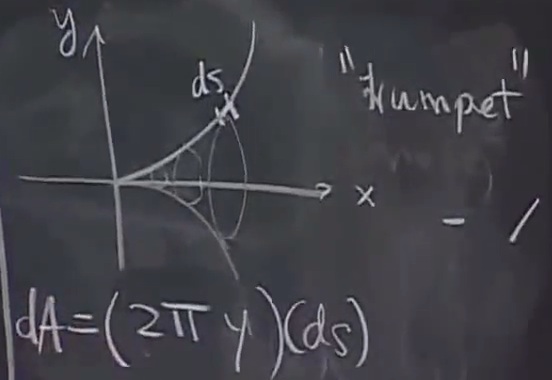 y
ds
"trumpet"
x
dA=(2π y)(ds)